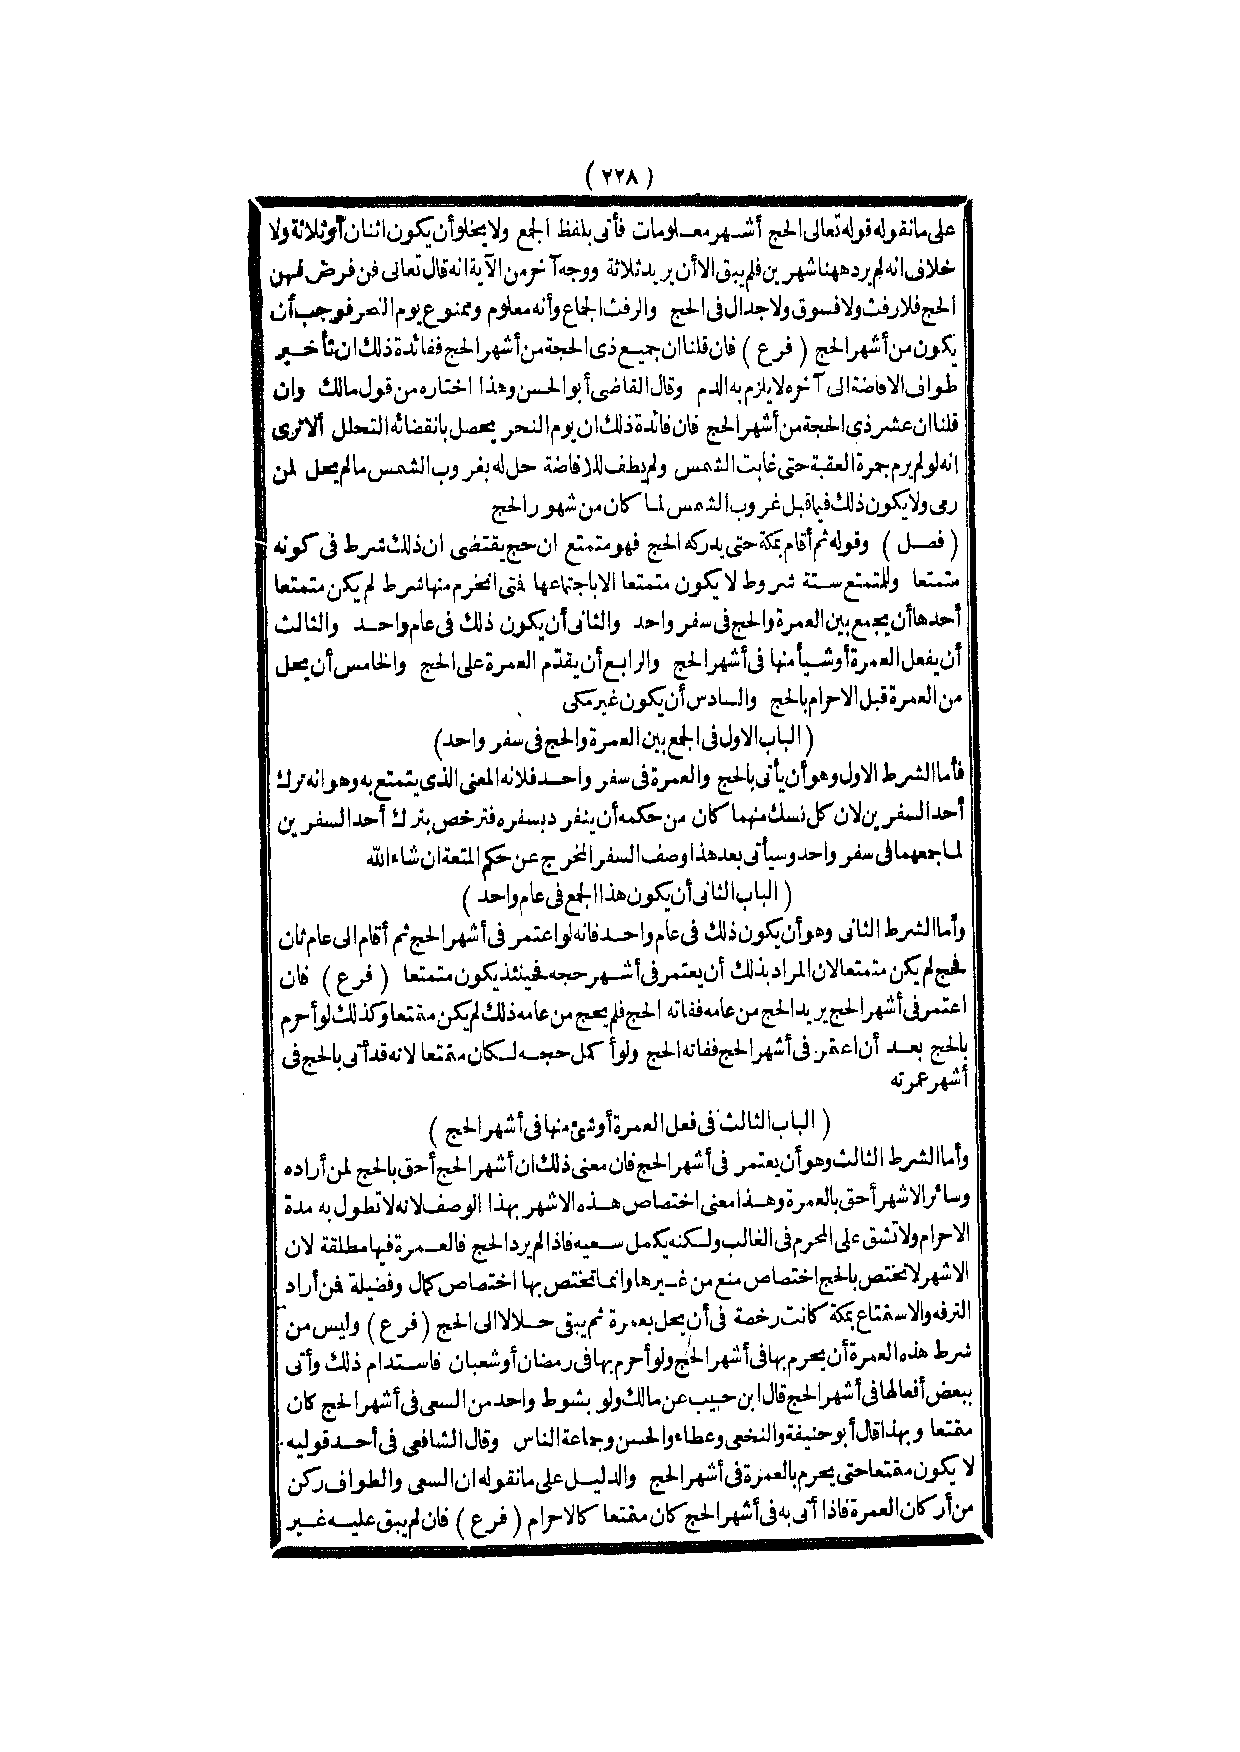 ( ٢٢٨ )
على ما نقوله قوله تعالى الحج أشهر معلومات فأتى بلفظ الجمع ولا يخلو أن يكون اثنان أو ثلاثة ولا
خلاف انه لم يرد ههنا شهرين فلم يبق الا أن يريد ثلاثة ووجه آخر من الآية انه قال تعالى فن فرض فيهن
الحج فلا رفث ولا فسوق ولا جدال فى الحج والرفث الجماع وأنه معلوم وممنوع يوم النحر فوجب أن
يكون من أشهر الحج ( فرع ) فان قلنا ان جميع ذى الحجة من أشهر الحج ففائدة ذلك ان تأخير
طواف الافاضة الى آخره لا يلزم به الدم وقال القاضى أبو الحسن وهذا اختاره من قول مالك وان
قلنا ان عشر ذى الحجة من أشهر الحج فان فائدة ذلك ان يوم النحر يحصل بانقضائه التحلل ألا ترى
انه لو لم يرم جمرة العقبة حتى غابت الشمس ولم يطف للافاضة حل له بغروب الشمس ما لم يحل لمن
رمى ولا يكون ذلك فيما قبل غروب الشمس لما كان من شهور الحج
( فصل ) وقوله ثم أقام بمكة حتى يدركه الحج فهو متمتع ان حج يقتضى ان ذلك شرط فى كونه
متمتعا وللمتمتع ستة شروط لا يكون متمتعا الا باجتماعها فتى انخرم منها شرط لم يكن متمتعا
أحدها أن يجمع بين العمرة والحج فى سفر واحد والثانى أن يكون ذلك فى عام واحد والثالث
أن يفعل العمرة أو شيأ منها فى أشهر الحج والرابع أن يقدّم العمرة على الحج والخامس أن يحل
من العمرة قبل الاحرام بالحج والسادس أن يكون غير مكى
( الباب الاول فى الجمع بين العمرة والحج فى سفر واحد)
فأما الشرط الاول وهو أن يأتى بالحج والعمرة فى سفر واحد فلانه المعنى الذى يتمتع به وهو انه ترك
أحد السفرين لان كل نسك منهما كان من حكمه أن ينفرد بسفره فترخص بترك أحد السفرين
لما جمعهما فى سفر واحد وسيأتى بعد هذا وصف السفر المخرج عن حكم المتعة ان شاء الله
( الباب الثانى أن يكون هذا الجمع فى عام واحد )
وأما الشرط الثانى وهو أن يكون ذلك فى عام واحد فانه لو اعتمر فى أشهر الحج ثم أقام الى عام ثان
فحج لم يكن متمتعا لان المراد بذلك أن يعتمر فى أشهر حجه فحينئذ يكون متمتعا ( فرع ) فان
اعتمر فى أشهر الحج يريد الحج من عامه ففاته الحج فلم يحج من عامه ذلك لم يكن متمتعا وكذلك لو أحرم
بالحج بعد أن اعتمر فى أشهر الحج ففاته الحج ولو أكمل حجه لكان متمتعا لانه قد أتى بالحج فى
أشهر عمرته
( الباب الثالث فى فعل العمرة أو شئ منها فى أشهر الحج )
وأما الشرط الثالث وهو أن يعتمر فى أشهر الحج فان معنى ذلك ان أشهر الحج أحق بالحج لمن أراده
وسائر الاشهر أحق بالعمرة وهذا معنى اختصاص هذه الاشهر بهذا الوصف لانه لا تطول به مدة
الاحرام ولا تشق على المحرم فى الغالب ولكنه يكمل سعيه فاذا لم يرد الحج فالعمرة فيها مطلقة لان
الاشهر لا تختص بالحج اختصاص منع من غيرها وانما تختص بها اختصاص كمال وفضيلة فمن أراد
الترفه والاستمتاع بمكة كانت رخصة فى أن يحل بعمرة ثم يبقى حلالا الى الحج ( فرع ) وليس من
شرط هذه العمرة أن يحرم بها فى أشهر الحج ولو أحرم بها فى رمضان أو شعبان فاستدام ذلك وأتى
ببعض أفعالها فى أشهر الحج قال ابن حبيب عن مالك ولو بشوط واحد من السعى فى أشهر الحج كان
متمتعا وبهذا قال أبو حنيفة والنخعى وعطاء والحسن وجماعة الناس وقال الشافعى فى أحد قوليه
لا يكون متمتعا حتى يحرم بالعمرة فى أشهر الحج والدليل على ما نقوله ان السعى والطواف ركن
من أركان العمرة فاذا أتى به فى أشهر الحج كان متمتعا كالاحرام ( فرع ) فان لم يبق عليه غير